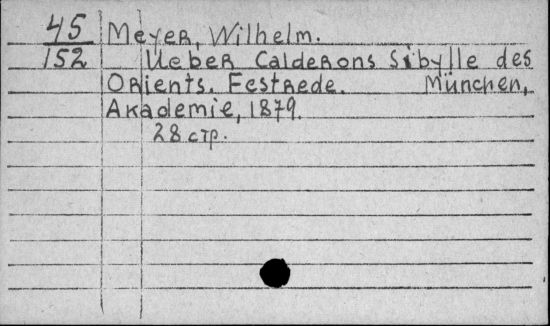 45 Meyer, Wilhelm.
152 Ueber Calderons Sibylle des
Orients. Festrede. München,
Akademie, 1879.
28 стр.